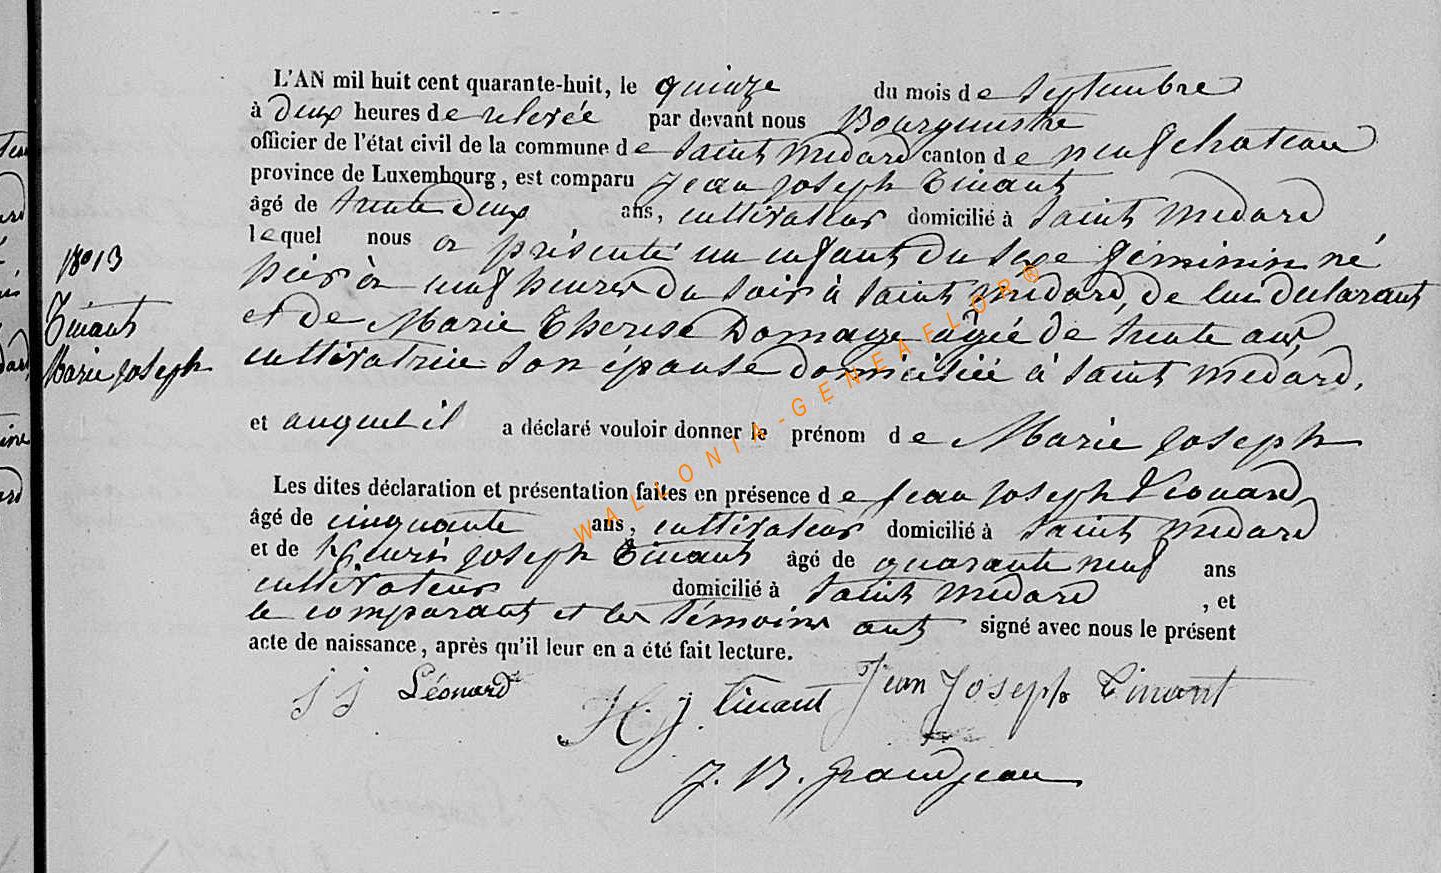 L'AN mil huit cent quarante-huit, le quinze du mois de Septembre
à deux heures de relevée par devant nous Bourgmestre
officier de l'état civil de la commune de Saint Médard canton de neufchateau
province de Luxembourg, est comparu Jean Joseph Tinant
âgé de trente deux ans, cultivateur domicilié à Saint Médard
lequel nous a présenté un enfant du sexe féminin né
hier à neuf heures du soir à Saint Médard, de lui déclarant
et de Marie Therese Domage agée de trente ans
cultivatrice son épouse domiciliée à Saint Médard,
et auquel il a déclaré vouloir donner le prénom de Marie Joseph
Les dites déclaration et présentation faites en présence de Jean Joseph Léonard
âgé de cinquante ans, cultivateur domicilié à Saint Médard
et de Henri Joseph Tinant âgé de quarante neuf ans
cultivateur domicilié à Saint Médard, et
le comparant et les témoins ont signé avec nous le présent
acte de naissance, après qu'il leur en a été fait lecture.
N° 13
Tinant
Marie Joseph
J J Léonard
H. J. Tinant
Jean Joseph Tinant
J. B. Grandjean
WALLONIA-GENEAFLOR®